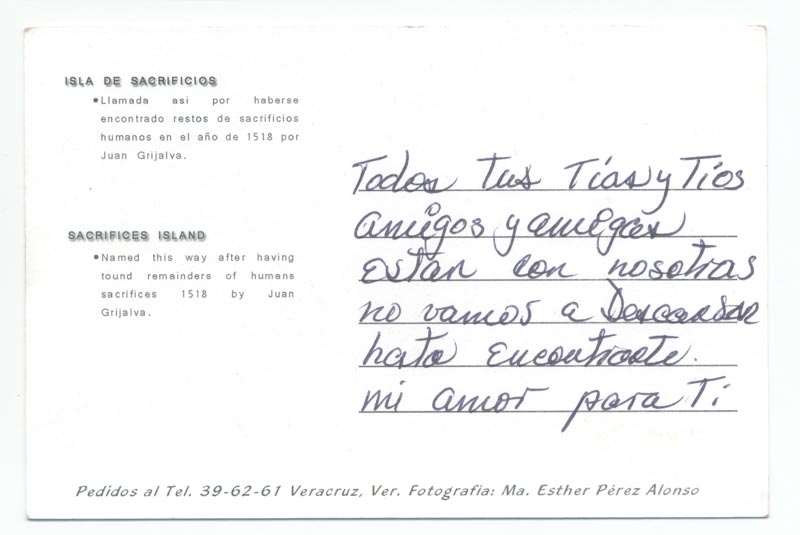 ISLA DE SACRIFICIOS
•Llamada asi por haberse
encontrado restos de sacrificios
humanos en el año de 1518 por
Juan Grijalva.
SACRIFICES ISLAND
•Named this way after having
tound remainders of humans
sacrifices 1518 by Juan
Grijalva.
Todos tus Tías y Tíos
amigos y amigas
están con nosotras
no vamos a Descansar
hata encontrarte.
mi amor para Ti
Pedidos al Tel. 39-62-61 Veracruz, Ver. Fotografia: Ma. Esther Pérez Alonso